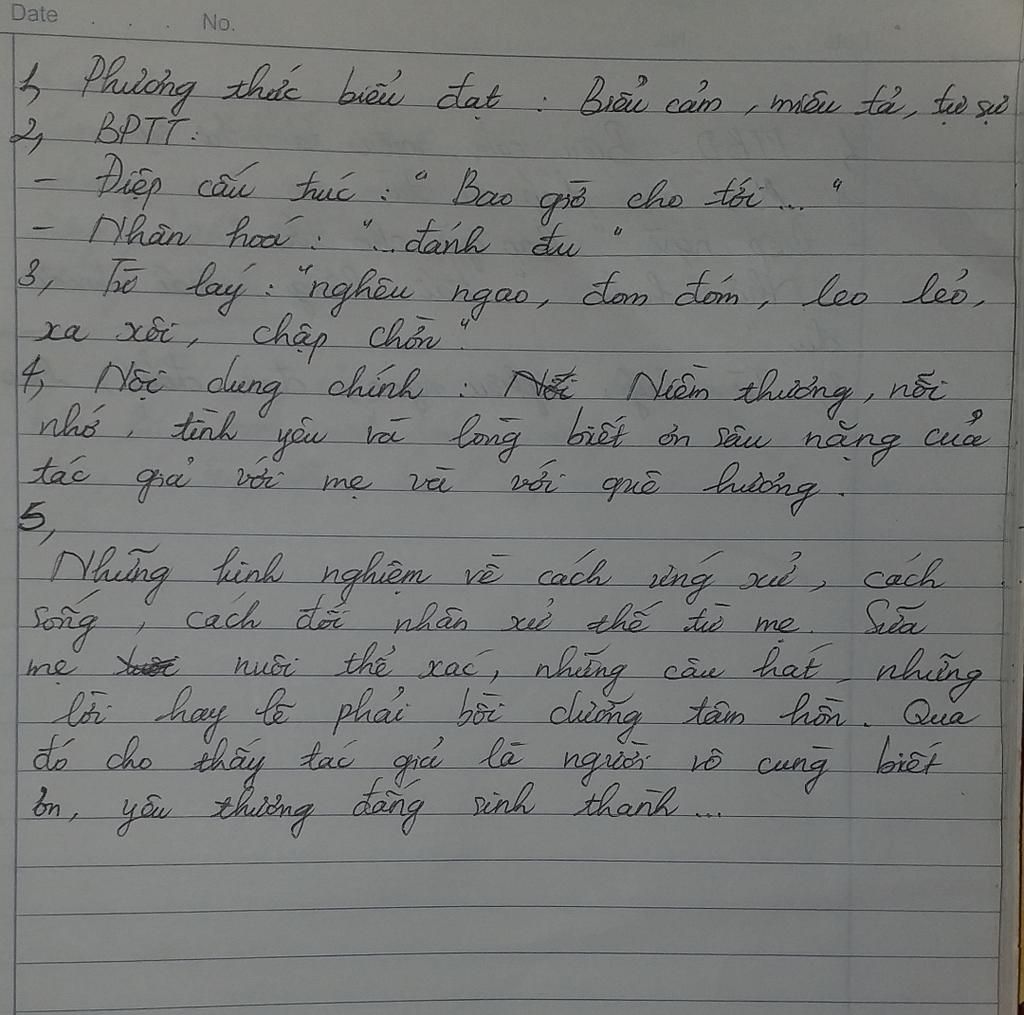 Date . . . No.
1, Phương thức biểu đạt : Biểu cảm, miêu tả, tự sự
2, BPTT:
- Điệp cấu trúc : " Bao giờ cho tới ... "
- Nhân hoá : "...đánh đu "
3, Từ láy : "nghêu ngao, đom đóm, leo lẻo,
xa xôi, chập chờn"
4, Nội dung chính : Nỗi Niềm thương, nỗi
nhớ, tình yêu và lòng biết ơn sâu nặng của
tác giả với mẹ và với quê hương.
5,
Những kinh nghiệm về cách ứng xử, cách
sống, cách đối nhân xử thế từ mẹ. Sữa
mẹ nuôi thể xác, những câu hát, những
lời hay lẽ phải bồi dưỡng tâm hồn. Qua
đó cho thấy tác giả là người vô cùng biết
ơn, yêu thương đấng sinh thành...